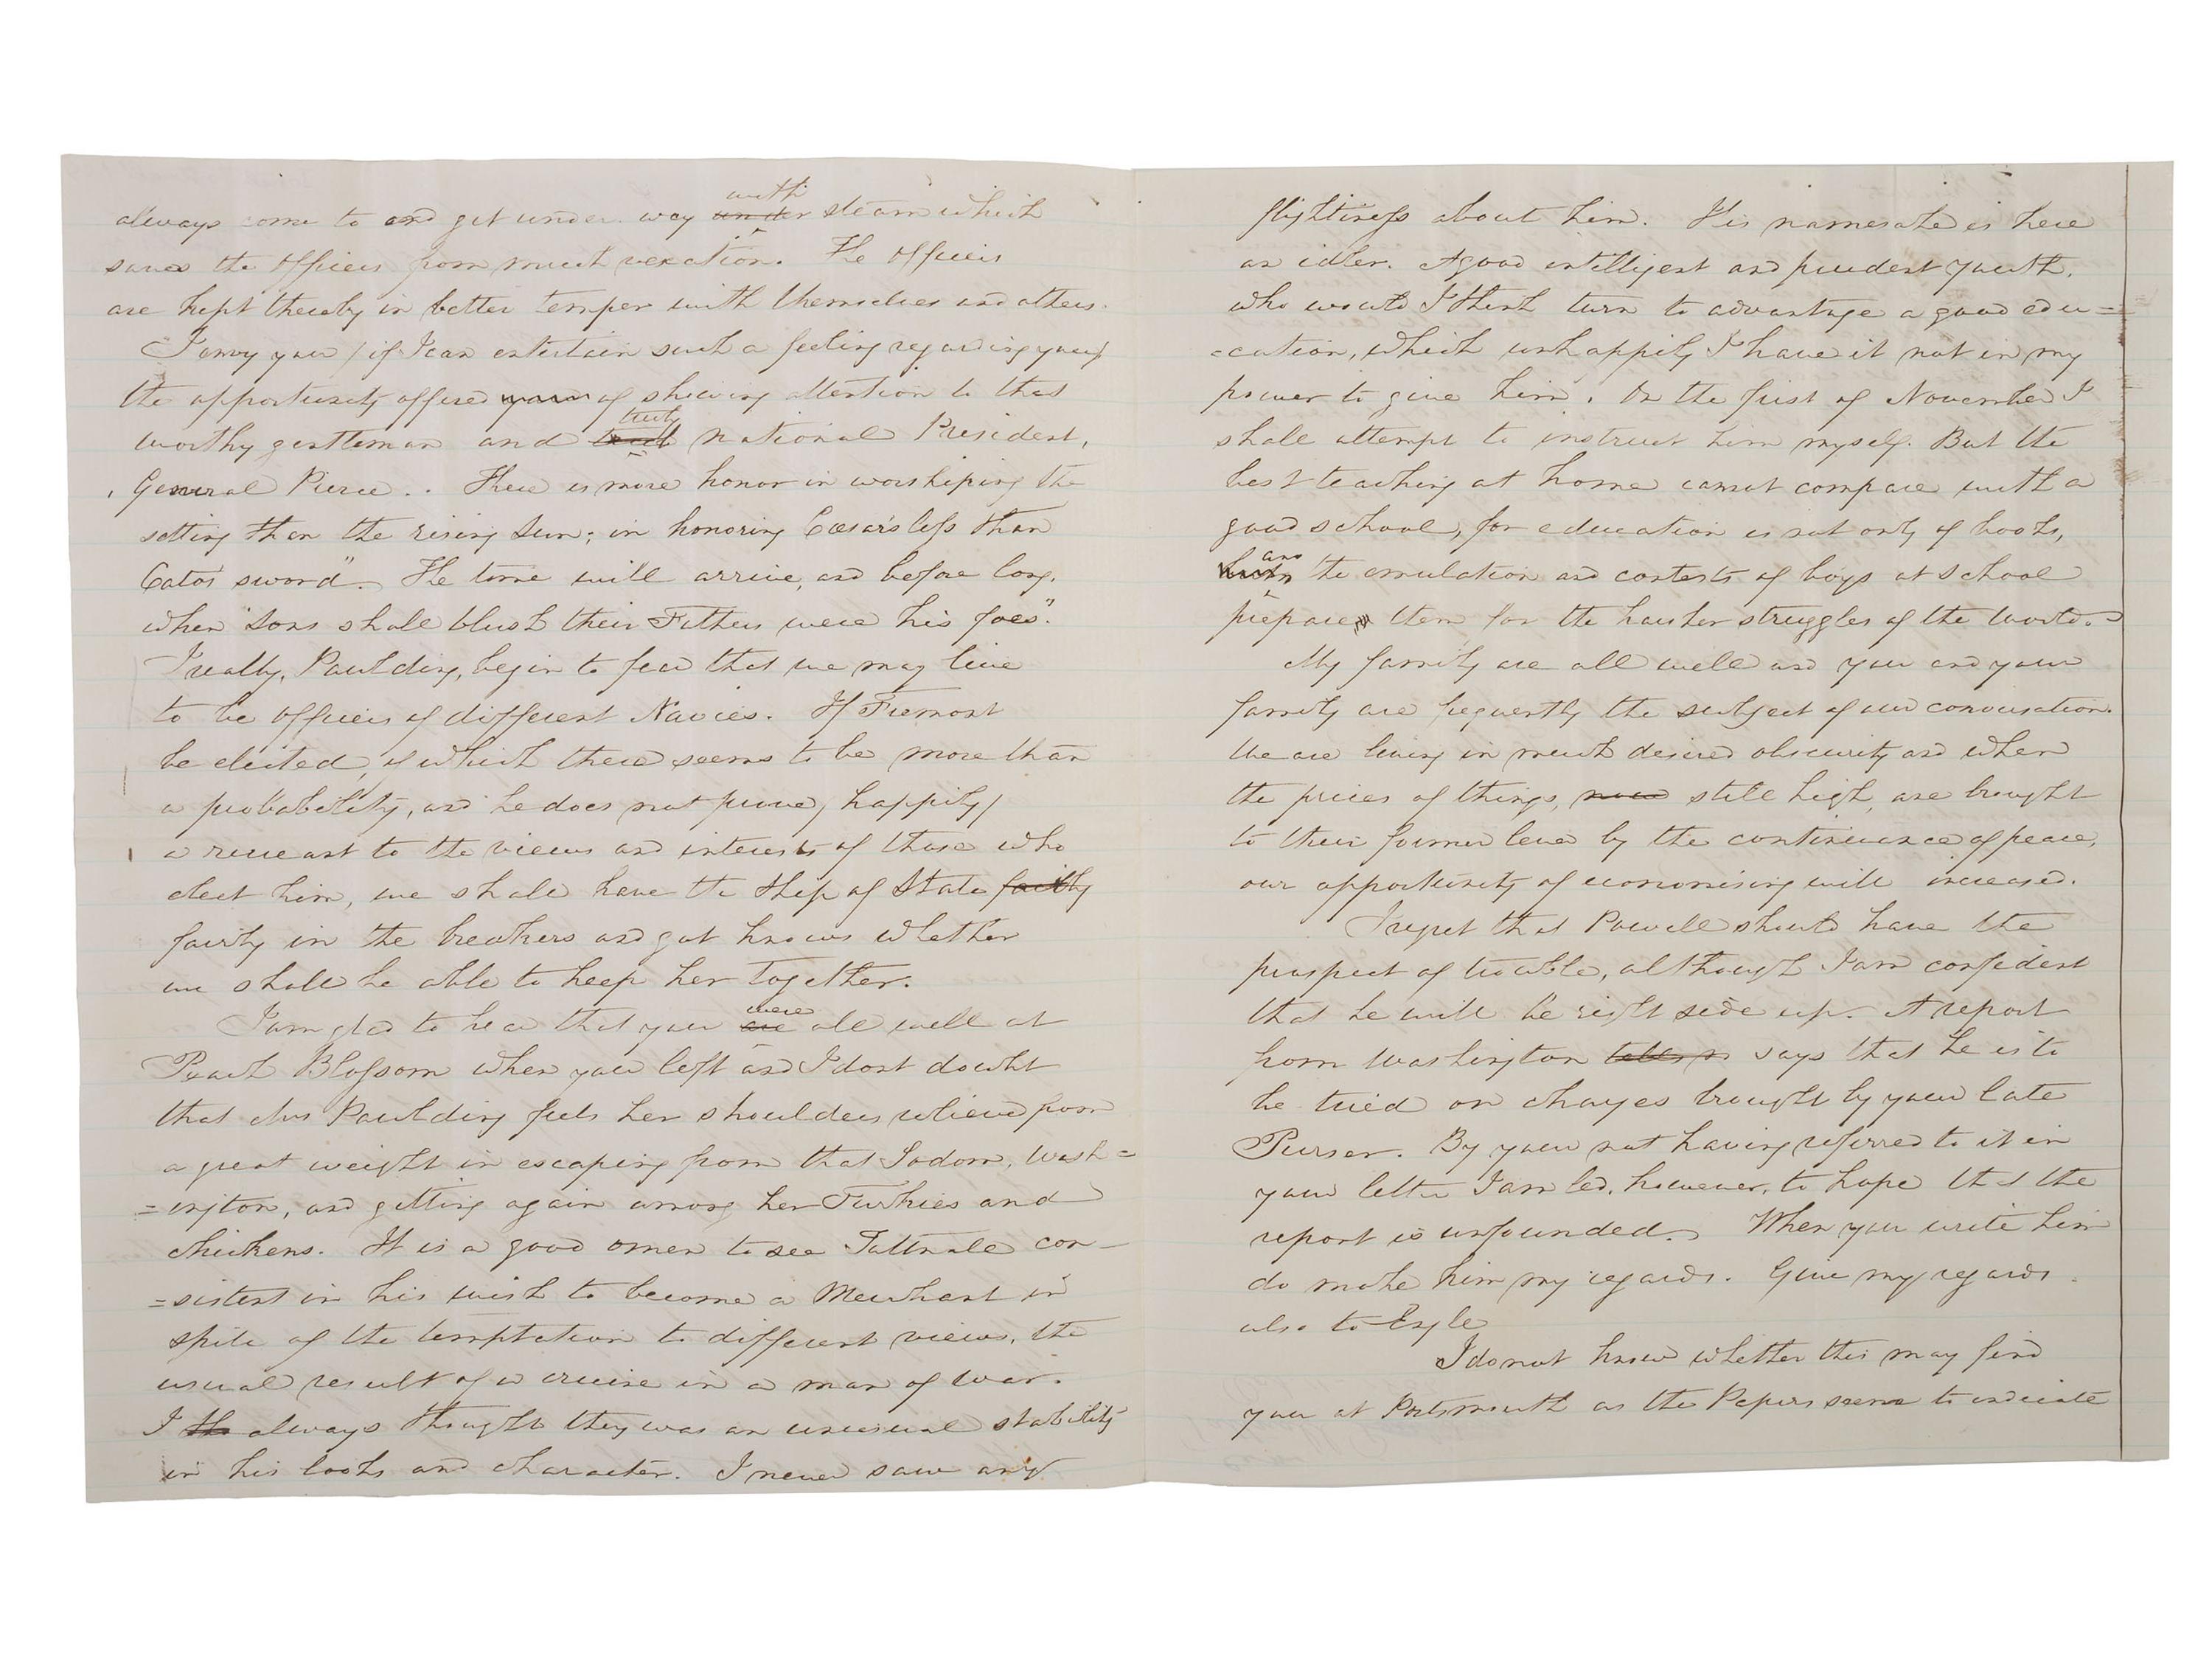 always come to and get under way under with steam which
saves the officers from much vexation. The officers
are kept thereby in better temper with themselves and others.
I envy you (if I can entertain such a feeling regarding you)
the opportunity offered of shewing attention to that
worthy gentleman and truly national President,
General Pierce. There is more honor in worshiping the
setting than the rising Sun; in honoring Cæsar's less than
Catos sword". The time will arrive, and before long,
when "Sons shall blush their Fathers were his foes".
I really, Paulding, begin to fear that we may live
to be officers of different Navies. If Fremont
be elected, of which there seems to be more than
a probability, and he does not prove, happily,
a recreant to the views and interests of those who
elect him, we shall have the Ship of State fairly
fairly in the breakers and got knows whether
we shall be able to keep her together.
I am glad to hear that you are were all well at
Peach Blossom when you left and I dont doubt
that Mrs Paulding feels her shoulders relieved from
a great weight in escaping from that Sodom, Wash=
=ington, and getting again among her Turkies and
chickens. It is a good omen to see Tattnall con-
=sistent in his wish to become a Merchant in
spite of the temptation to different views, the
usual result of a cruise in a man of war.
I th always thought they was an unusual stability
in his looks and character. I never saw any
flightiness about him. His namesake is here
an idler. A good intelligent and prudent youth,
who would I think turn to advantage a good edu=
=cation, which unhappily I have it not in my
power to give him. On the first of November I
shall attempt to instruct him myself. But the
best teaching at home cannot compare with a
good school, for education is not only of books,
and the emulation and contests of boys at school
prepare them for the harsher struggles of the world.
My family are all well and you and your
family are frequently the subject of our conversation.
We are living in much desired obscurity and when
the prices of things, now still high, are brought
to their former level by the continuance of peace,
our opportunity of economising will increase.
I regret that Powell should have the
prospect of trouble, although I am confident
that he will be right side up. A report
from Washington says that he is to
be tried on charges brought by your late
Purser. By your not having referred to it in
your letter I am led, however, to hope that the
report is unfounded. When you write him
do make him my regards. Give my regards
also to Engle
I do not know whether this may find
you at Portsmouth as the Papers seem to indicate